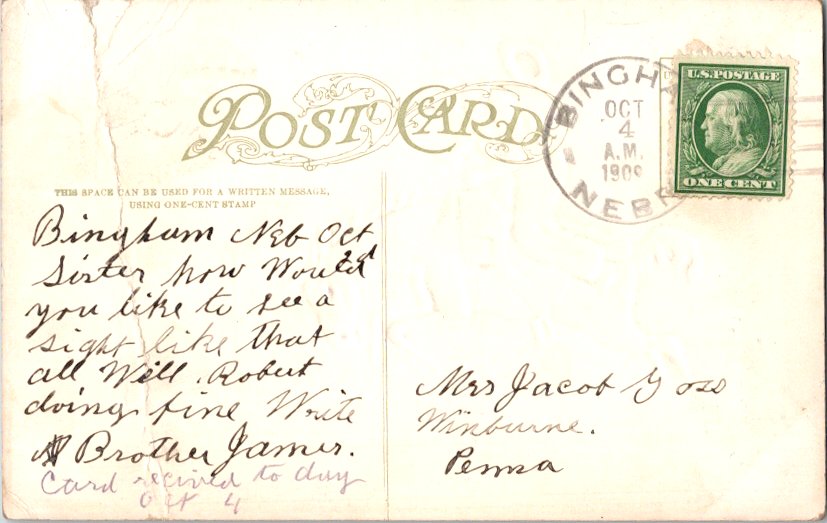 POST CARD
THIS SPACE CAN BE USED FOR A WRITTEN MESSAGE,
USING ONE-CENT STAMP
BINGHA
OCT
4
A.M.
1909
NEBR
U.S. POSTAGE
ONE CENT
Bingham Neb Oct
2d
Sister how Would
you like to see a
sight like that
all Well. Robert
doing fine Write
Brother James.
Card recived to day
Oct 4
Mrs Jacob Goss
Winburne.
Penna